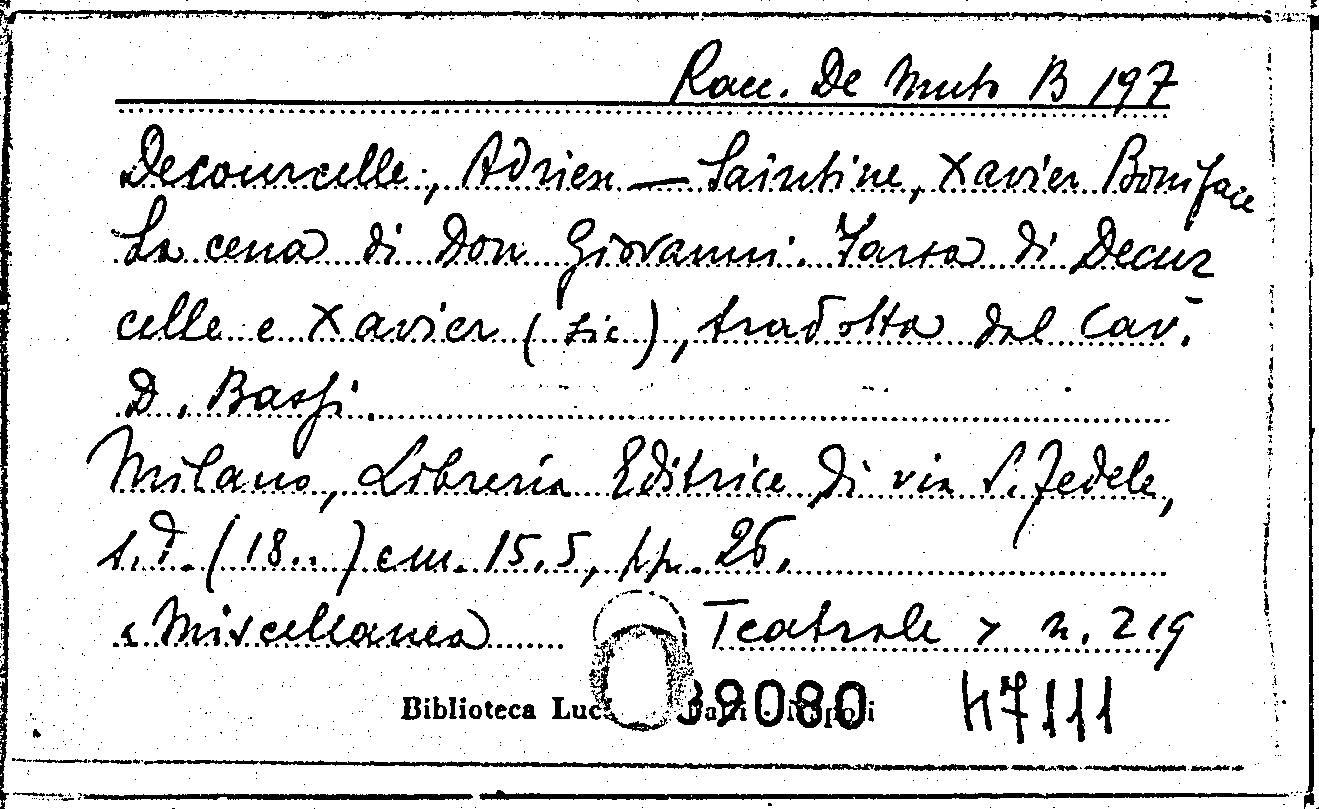 Racc. De Muto B 197
Decourcelle, Adrien — Saintine, Xavier Boniface
La cena di Don Giovanni. Farsa di Decur
celle e Xavier (sic), tradotta dal Cav.
D. Bassi.
Milano, Libreria Editrice di via S. Fedele,
s.d. (18..) cm. 15.5, pp. 26.
« Miscellanea Teatrale » n. 219
Biblioteca 39080 47111